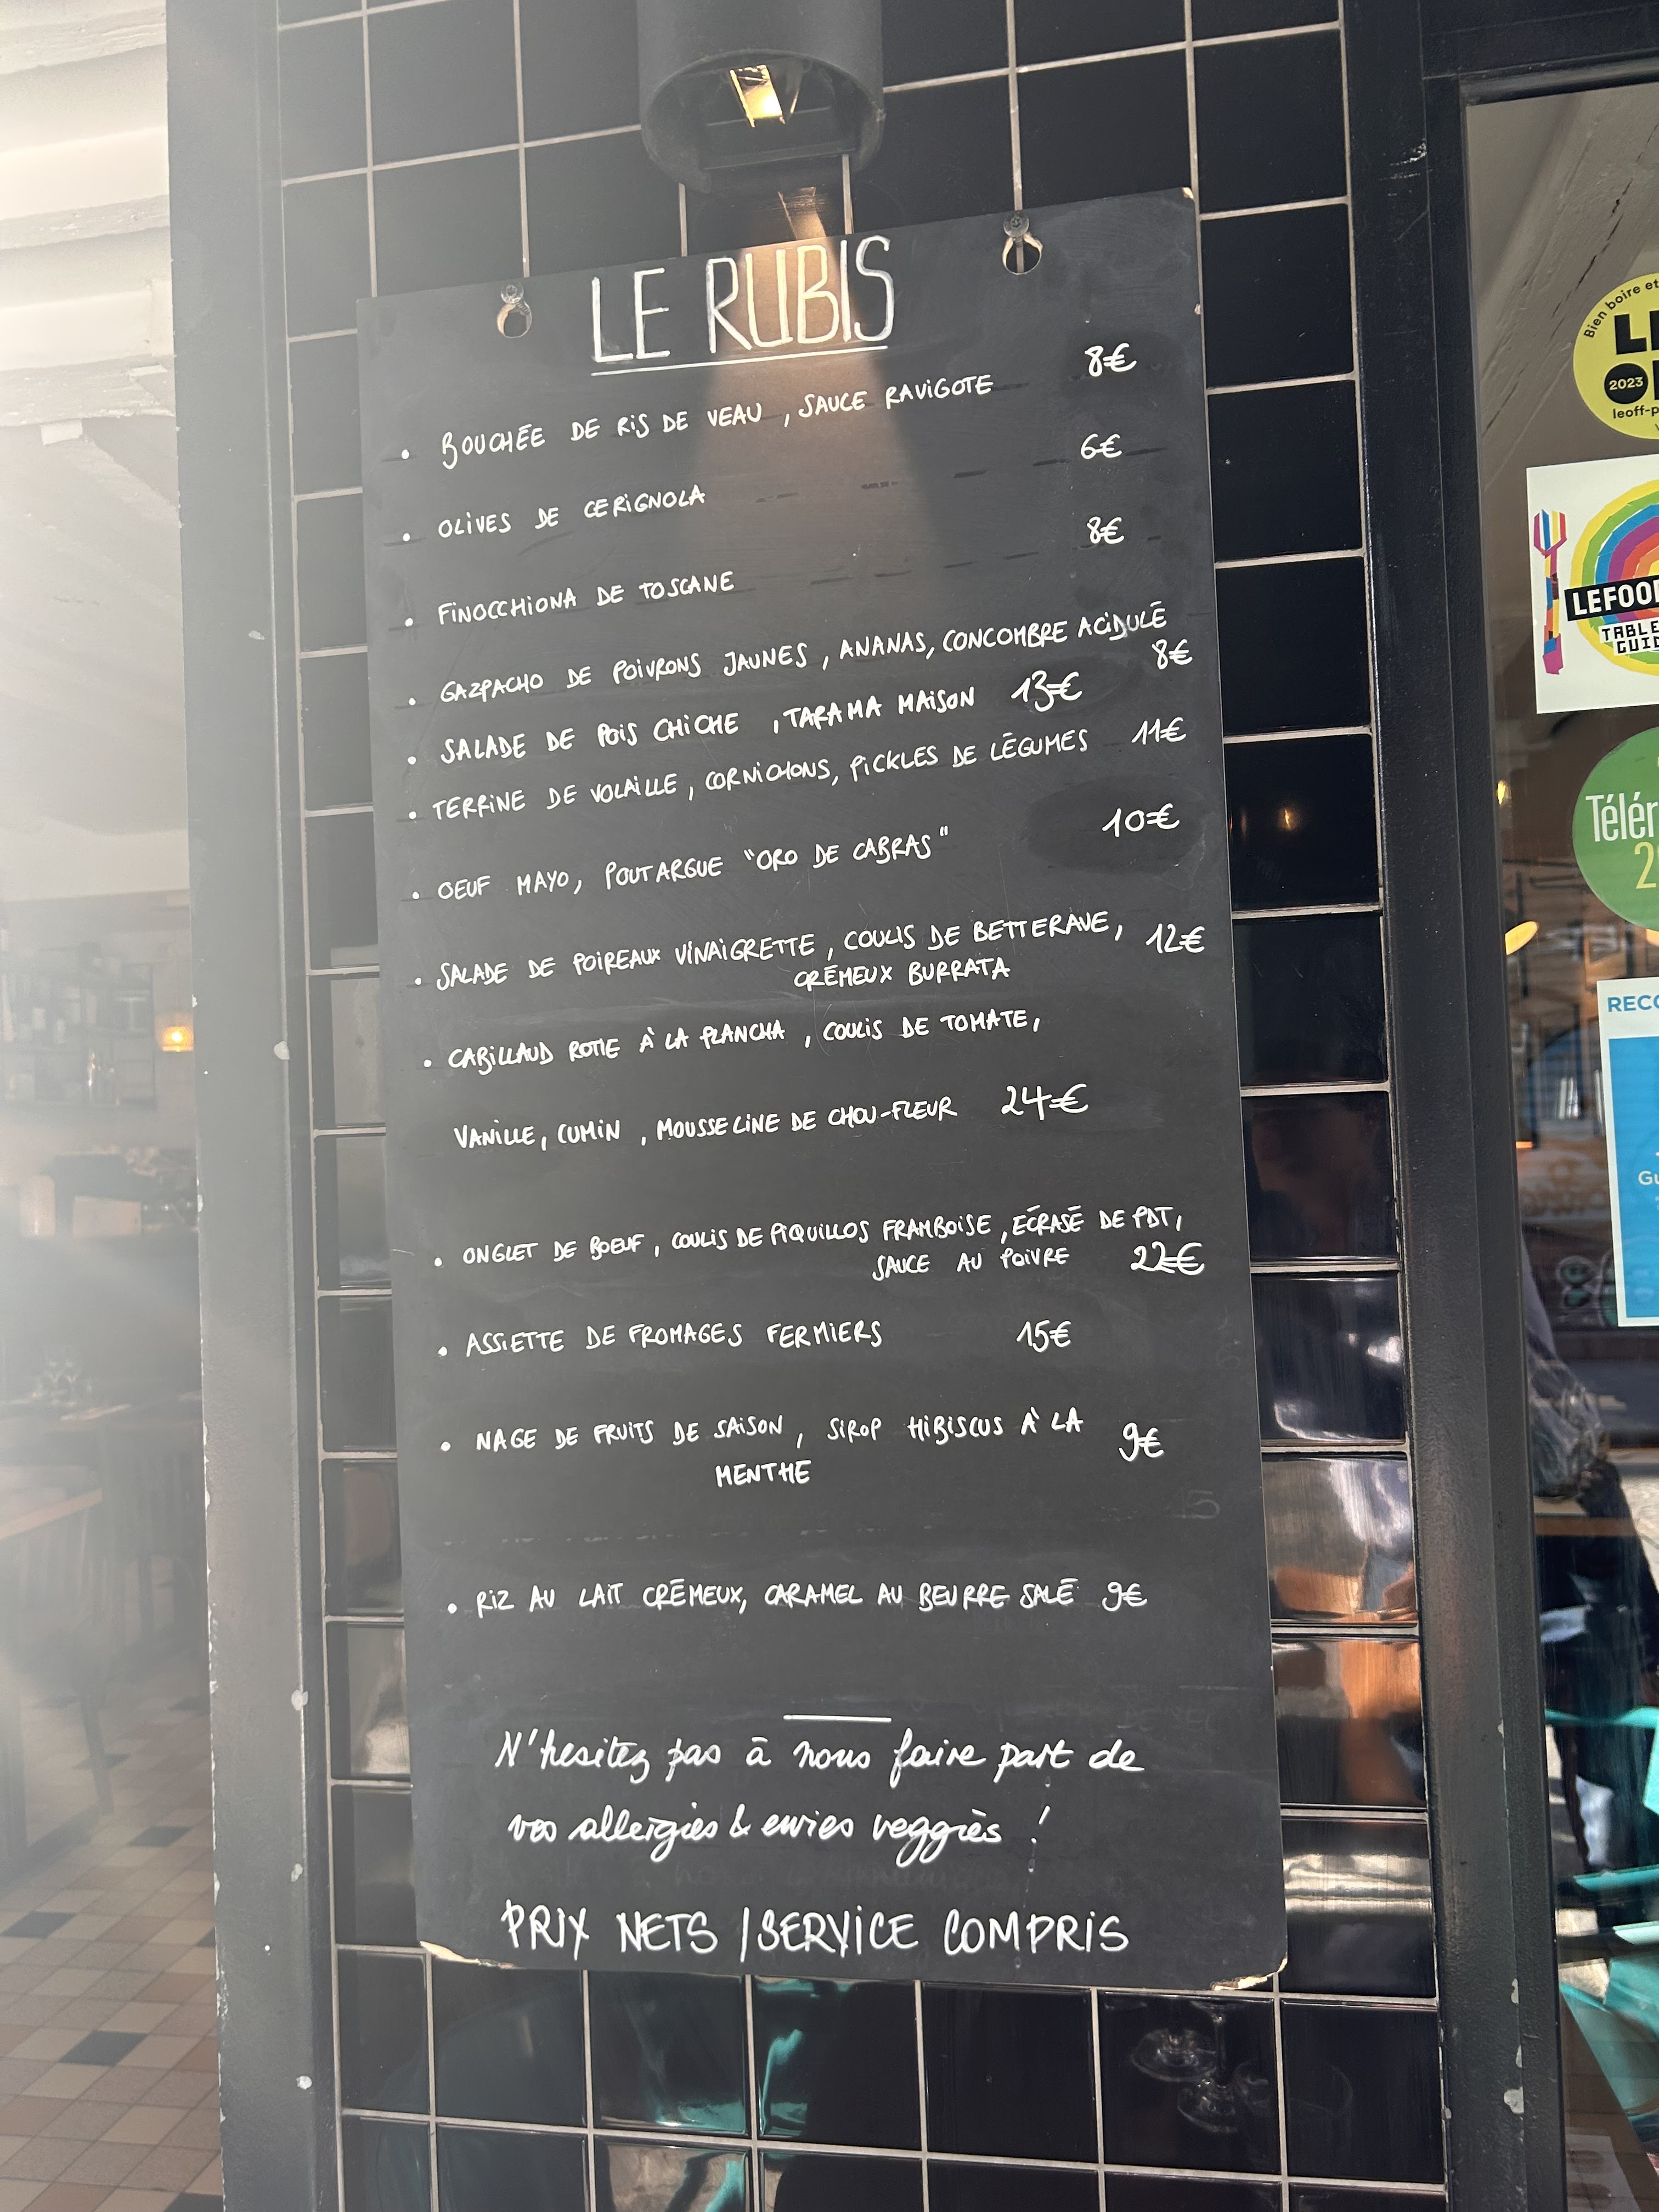 LE RUBIS
• BOUCHÉE DE RIS DE VEAU, SAUCE RAVIGOTE 8€
• OLIVES DE CERIGNOLA 6€
• FINOCCHIONA DE TOSCANE 8€
• GAZPACHO DE POIVRONS JAUNES, ANANAS, CONCOMBRE ACIDULÉ
8€
• SALADE DE POIS CHICHE, TARAMA MAISON 13€
• TERRINE DE VOLAILLE, CORNICHONS, PICKLES DE LÉGUMES 11€
• OEUF MAYO, POUTARGUE "ORO DE CABRAS" 10€
• SALADE DE POIREAUX VINAIGRETTE, COULIS DE BETTERAVE, 12€
CRÉMEUX BURRATA
• CABILLAUD ROTIE À LA PLANCHA, COULIS DE TOMATE,
VANILLE, CUMIN, MOUSSELINE DE CHOU-FLEUR 24€
• ONGLET DE BOEUF, COULIS DE PIQUILLOS FRAMBOISE, ÉCRASÉ DE PDT,
SAUCE AU POIVRE 22€
• ASSIETTE DE FROMAGES FERMIERS 15€
• NAGE DE FRUITS DE SAISON, SIROP HIBISCUS À LA 9€
MENTHE
• RIZ AU LAIT CRÉMEUX, CARAMEL AU BEURRE SALÉ 9€
N'hesitez pas à nous faire part de
vos allergies & envies veggies !
PRIX NETS / SERVICE COMPRIS
Bien boire et
2023
leoff-p
LEFOO
TABLE
GUID
Télér
RECO